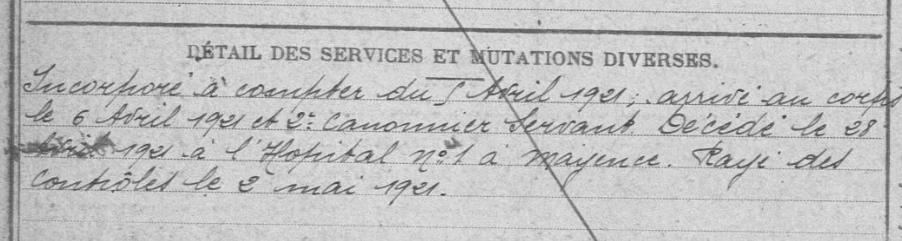 DÉTAIL DES SERVICES ET MUTATIONS DIVERSES.
Incorporé à compter du 5 Avril 1921, arrivé au corps
le 6 Avril 1921 et 2e Canonnier Servant. Décédé le 28
Avril 1921 à l'Hopital no 1 a Mayence. Rayé des
Contrôles le 2 mai 1921.